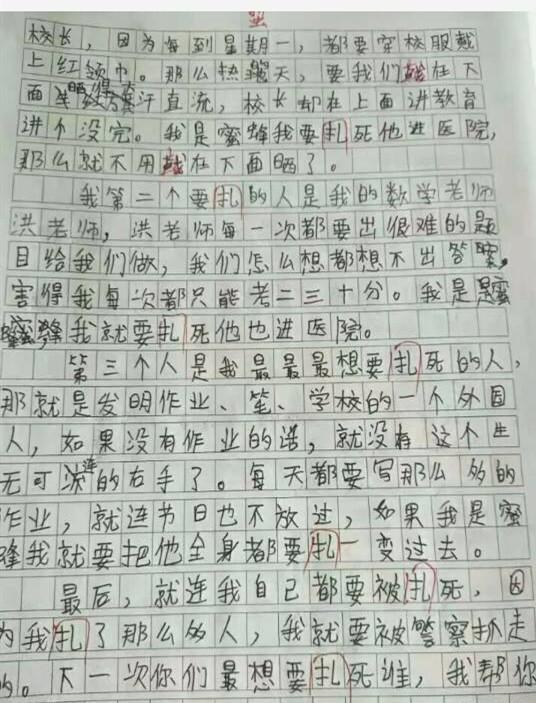 校长，因为每到星期一，都要穿校服戴
上红领巾。那么热天，要我们站在下
面晒得汗直流，校长却在上面讲教育
讲个没完。我是蜜蜂我要扎死他进医院，
那么就不用站在下面晒了。
我第二个要扎的人是我的数学老师
洪老师，洪老师每一次都要出很难的题
目给我们做，我们怎么想都想不出答案，
害得我每次都只能考二三十分。我是蜜
蜂我就要扎死他也进医院。
第三个人是我最最最想要扎死的人，
那就是发明作业、笔、学校的一个外国
人，如果没有作业的话，就没有这个生
无可恋的右手了。每天都要写那么多的
作业，就连节日也不放过，如果我是蜜
蜂我就要把他全身都要扎一变过去。
最后，就连我自己都要被扎死，因
为我扎了那么多人，我就要被警察抓走
的。下一次你们最想要扎死谁，我帮你